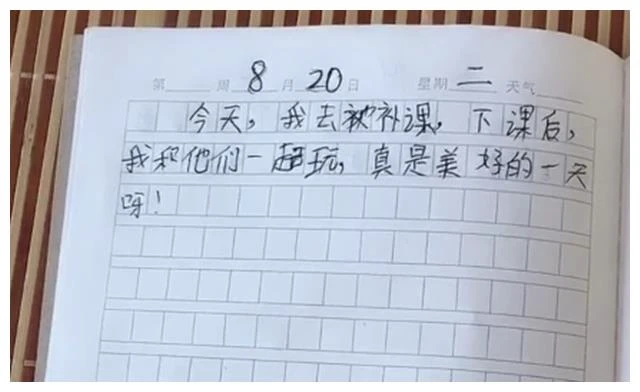 第 周 8 月 20 日 星期 二 天气
今天，我去被补课，下课后，
我和他们一超玩，真是美好的一天
呀！